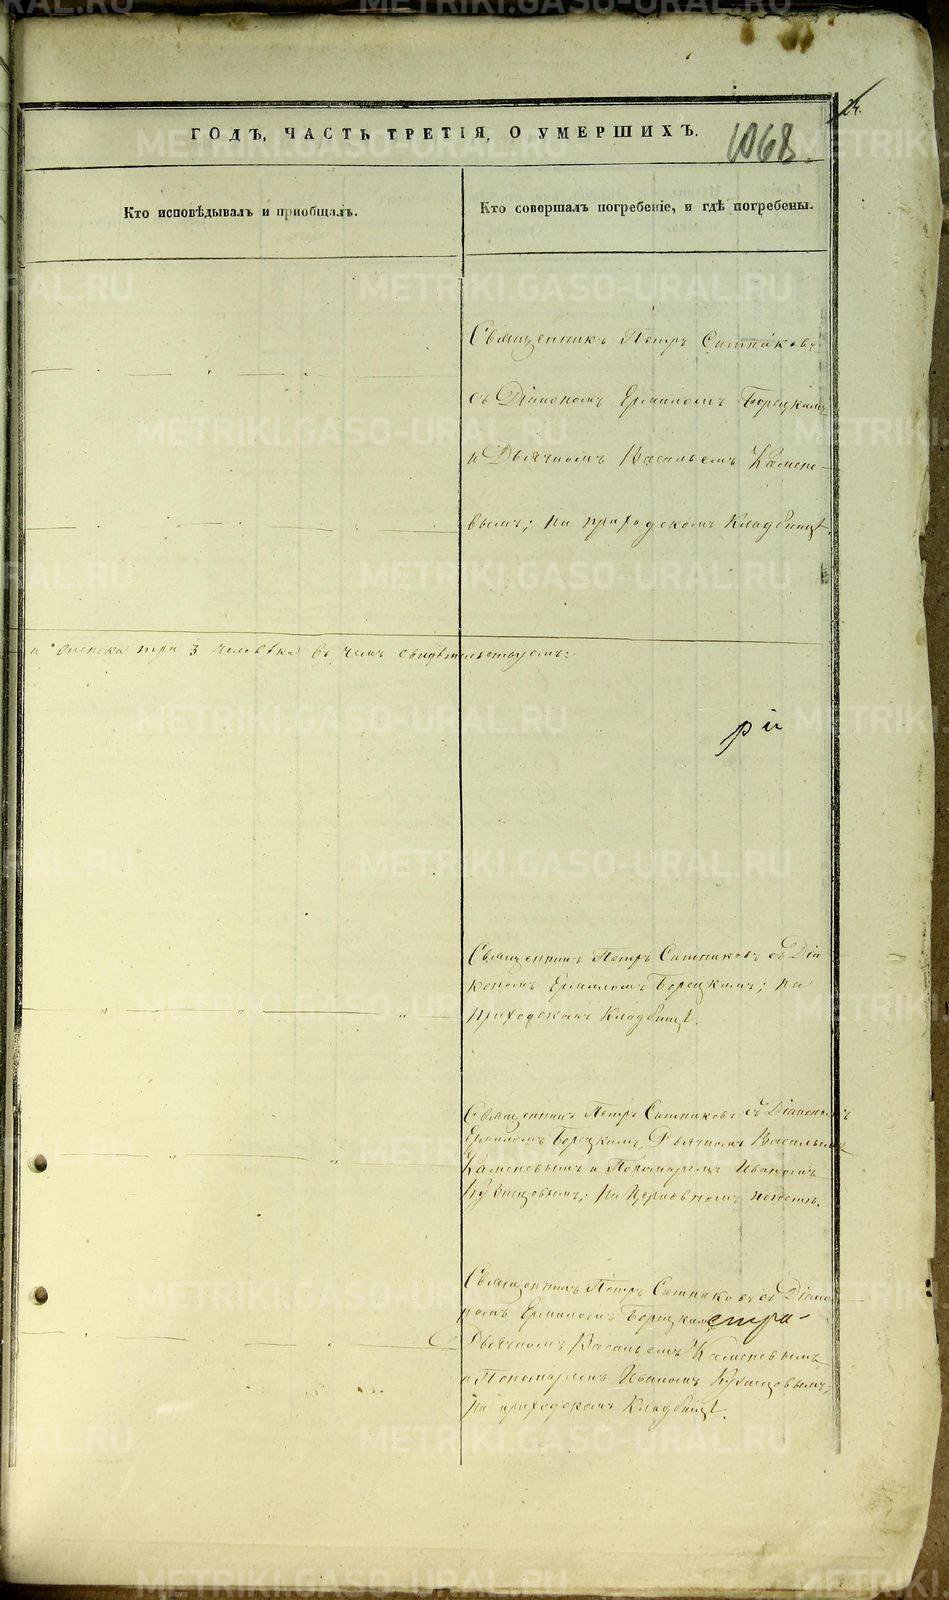 24.
ГОДЪ, ЧАСТЬ ТРЕТІЯ, О УМЕРШИХЪ.
1068.
Кто исповѣдывалъ и пріобщалъ.
Кто совершалъ погребеніе, и гдѣ погребены.
Священникъ Петръ Ситниковъ
съ Діакономъ Ермиломъ Борецкимъ
и Дьячкомъ Васильемъ Камене-
вымъ; на приходскомъ кладбищѣ.
и женска три 3 человѣка въ чемъ свидѣтельствуемъ:
рії
Священникъ Петръ Ситниковъ съ Діа
кономъ Ермиломъ Борецкимъ; на
приходскомъ кладбищѣ.
Священникъ Петръ Ситниковъ съ Діакономъ
Ермиломъ Борецкимъ, Дьячкомъ Васильемъ
Каменевымъ и Пономаремъ Иваномъ
Кузнецовымъ; на Церковномъ погостѣ.
Священникъ Петръ Ситниковъ съ Діако
номъ Ермиломъ Борецкимъ
Дьячкомъ Васильемъ Каменевымъ
и Пономаремъ Иваномъ Кузнецовымъ;
на приходскомъ кладбищѣ.
METRIKI.GASO-URAL.RU